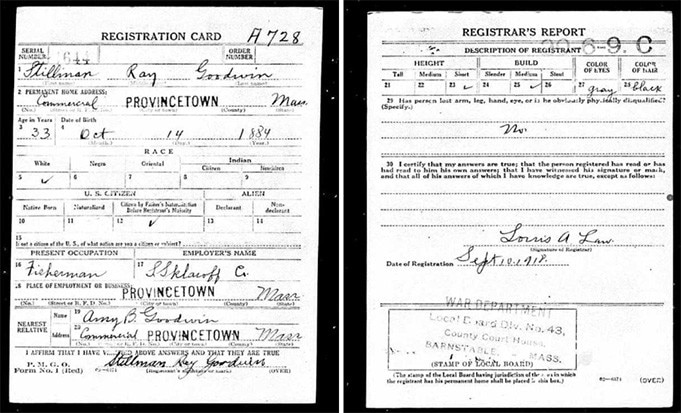 REGISTRATION CARD A728
SERIAL NUMBER ORDER NUMBER
1 Stillman Ray Goodwin
2 PERMANENT HOME ADDRESS:
Commercial PROVINCETOWN Mass
(No.) (County) (State)
Age in Years Date of Birth
3 33 4 Oct 14 1884
(Month.) (Day.) (Year.)
RACE
White Negro Oriental Indian
Citizen Noncitizen
5 ✓ 6 7 8 9
U. S. CITIZEN ALIEN
Native Born Naturalized Citizen by Father's Naturalization Before Registrant's Majority Declarant Non-declarant
10 11 12 ✓ 13 14
15
If not a citizen of the U. S., of what nation are you a citizen or subject?
PRESENT OCCUPATION EMPLOYER'S NAME
16 Fisherman 17 Co.
18 PLACE OF EMPLOYMENT OR BUSINESS:
PROVINCETOWN Mass
(No.) (Street or R. F. D. No.) (City or town) (County) (State)
NEAREST RELATIVE Name 19 Amy B Goodwin
Address 20 Commercial PROVINCETOWN Mass
(No.) (City or town) (County) (State)
I AFFIRM THAT I HAVE ABOVE ANSWERS AND THAT THEY ARE TRUE
P. M. G. O.
Form No. 1 (Red) Stillman Ray Goodwin
(OVER)
REGISTRAR'S REPORT
6-9. C
DESCRIPTION OF REGISTRANT
HEIGHT BUILD COLOR OF EYES COLOR OF HAIR
Tall Medium Short Slender Medium Stout
21 22 23 ✓ 24 25 ✓ 26 27 gray 28 black
29 Has person lost arm, leg, hand, eye, or is he obviously physically disqualified?
(Specify.)
No.
30 I certify that my answers are true; that the person registered has read or has
had read to him his own answers; that I have witnessed his signature or mark,
and that all of his answers of which I have knowledge are true, except as follows:
Louis A Law
(Signature of Registrar)
Date of Registration Sept 12, 1918.
WAR DEPARTMENT
Local Board Div. No. 43,
County Court House,
BARNSTABLE, MASS.
(STAMP OF LOCAL BOARD)
(The stamp of the Local Board having jurisdiction of the area in which
the registrant has his permanent home shall be placed in this box.)
(OVER)